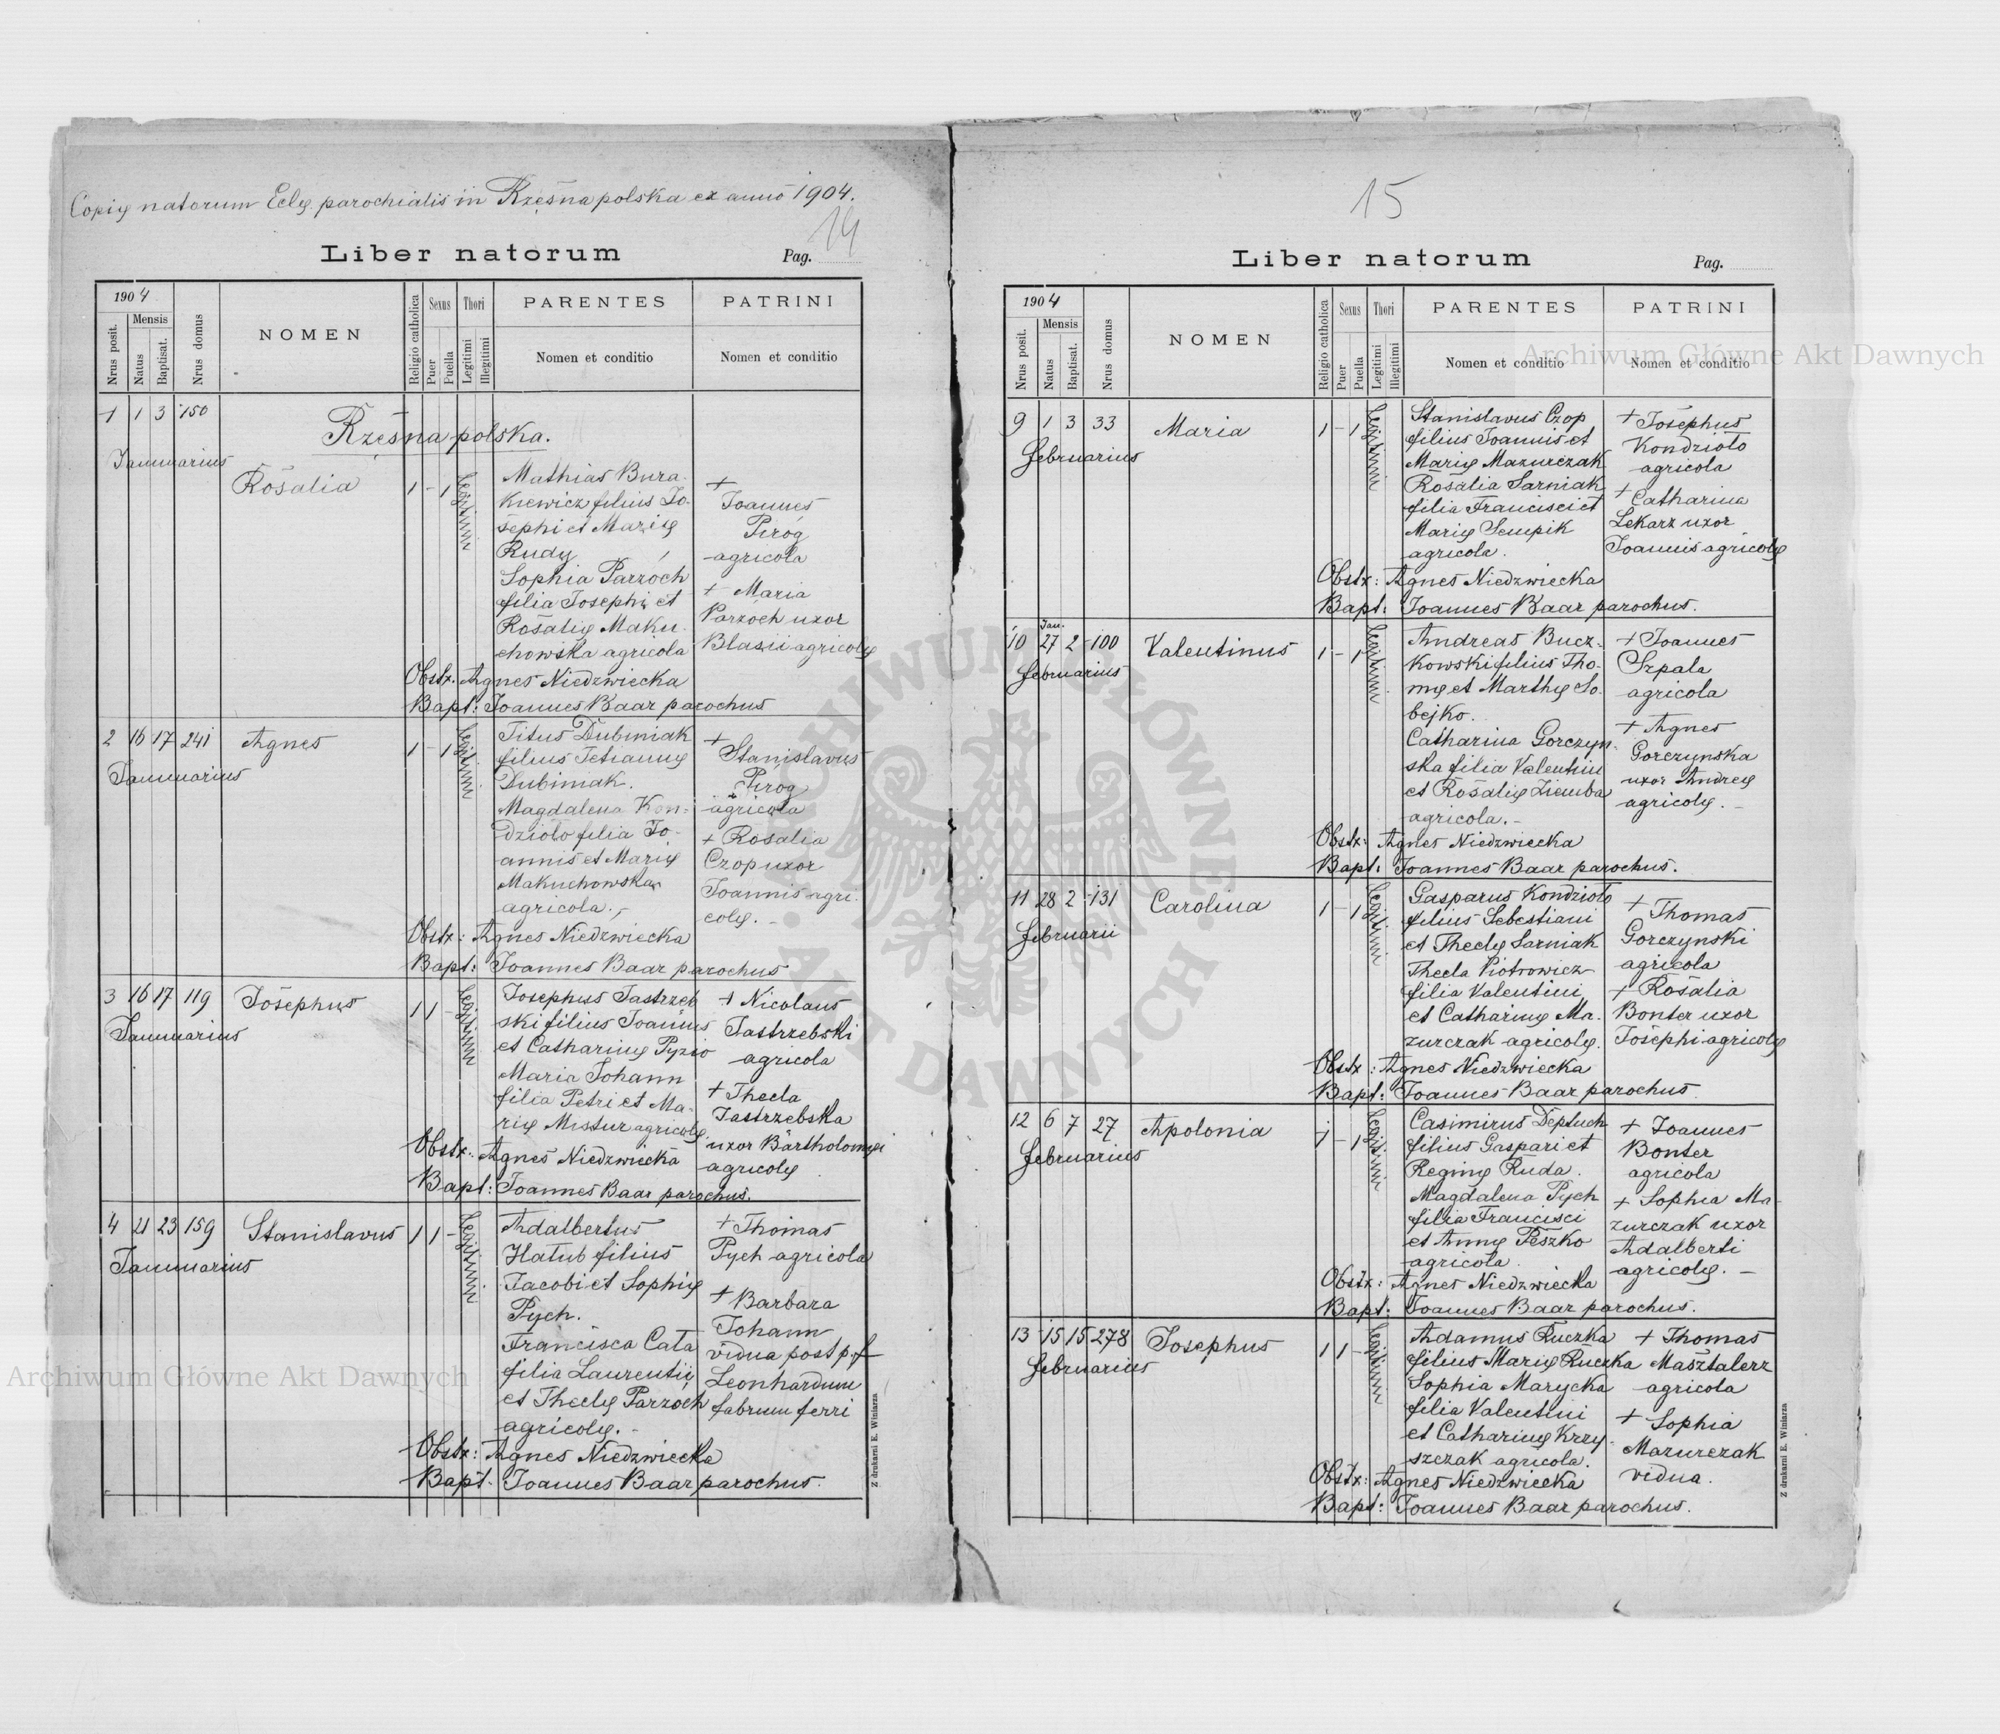 Copię natorum Eclę. parochialis in Rzęsna polska ex anno 1904.
14
Liber natorum
Pag.
1904
Nrus posit.
Mensis
Natus
Baptisat.
Nrus domus
NOMEN
Religio catholica
Sexus
Puer
Puella
Thori
Legitimi
Illegitimi
PARENTES
Nomen et conditio
PATRINI
Nomen et conditio
1 1 3 150
Rzęsna polska.
Januarius
Rosalia
1 - 1
Legitimi
Mathias Bura-
kiewicz filius Jo-
sephi et Marię
Rudy
Sophia Parzoch
filia Josephi et
Rosalię Maku-
chowska agricola
+
Joannes
Piróg
agricola
+ Maria
Parzoch uxor
Blasii agricolę
Obstx. Agnes Niedzwiecka
Bapt: Joannes Baar parochus
2 16 17 241
Januarius
Agnes
1 - 1
Legitimi
Titus Dubiniak
filius Tetianny
Dubiniak.
Magdalena Kon-
dzioło filia Jo-
annis et Marię
Makuchowska
agricola.
+
Stanislavus
Piróg
agricola
+ Rosalia
Czop uxor
Joannis agri-
colę.
Obstx: Agnes Niedzwiecka
Bapt: Joannes Baar parochus
3 16 17 119
Januarius
Josephus
1 1 -
Legitimi
Josephus Jastrzeb
ski filius Joannis
et Catharinę Pyzio
Maria Johann
filia Petri et Ma-
rię Mistur agricolę
+ Nicolaus
Jastrzebski
agricola
+ Thecla
Jastrzebska
uxor Bartholomęi
agricolę
Obstx: Agnes Niedzwiecka
Bapt: Joannes Baar parochus.
4 21 23 159
Januarius
Stanislavus
1 1 -
Legitimi
Adalbertus
Hałub filius
Jacobi et Sophię
Pych.
Francisca Cała
filia Laurentii
et Theclę Parzoch
agricolę.
+ Thomas
Pych agricola
+ Barbara
Johann
vidua post p.f
Leonhardum
fabrum ferri
Obstx: Agnes Niedzwiecka
Bapt. Joannes Baar parochus.
Z drukarni E. Winiarza
15
Liber natorum
Pag.
1904
Nrus posit.
Mensis
Natus
Baptisat.
Nrus domus
NOMEN
Religio catholica
Sexus
Puer
Puella
Thori
Legitimi
Illegitimi
PARENTES
Nomen et conditio
PATRINI
Nomen et conditio
9 1 3 33
februarius
Maria
1 - 1
Legitimi
Stanislavus Czop
filius Joannis et
Marię Mazurczak
Rosalia Sarniak
filia Francisci et
Marię Sempik
agricola.
+ Josephus
Kondzioło
agricola
+ Catharina
Lekarz uxor
Joannis agricolę
Obstx: Agnes Niedzwiecka
Bapt: Joannes Baar parochus.
Jan.
10 27 2 100
februarius
Valentinus
1 - 1
Legitimi
Andreas Bucz-
kowski filius Tho-
mę et Marthę So-
bejko.
Catharina Gorczyn-
ska filia Valentini
et Rosalię Ziemba
agricola.-
+ Joannes
Szpala
agricola
+ Agnes
Gorczynska
uxor Andreę
agricolę.-
Obstx: Agnes Niedzwiecka
Bapt: Joannes Baar parochus.
11 28 2 131
februarii
Carolina
1 - 1
Legitimi
Gasparus Kondzioło
filius Sebestiani
et Theclę Sarniak
Thecla Piotrowicz
filia Valentini
et Catharinę Ma-
zurczak agricolę.
+ Thomas
Gorczynski
agricola
+ Rosalia
Bonter uxor
Josephi agricolę
Obstx: Agnes Niedzwiecka
Bapt: Joannes Baar parochus
12 6 7 27
februarius
Apolonia
1 - 1
Legitimi
Casimirus Deptuch
filius Gaspari et
Reginę Ruda.
Magdalena Pych
filia Francisci
et Annę Peszko
agricola.
+ Joannes
Bonter
agricola
+ Sophia Ma-
zurczak uxor
Adalberti
agricolę.-
Obstx: Agnes Niedzwiecka
Bapt: Joannes Baar parochus.
13 15 15 278
februarius
Josephus
1 1 -
Legitimi
Adamus Ruczka
filius Marię Ruczka
Sophia Marycka
filia Valentini
et Catharinę Krzy-
szczak agricola.
+ Thomas
Masztalerz
agricola
+ Sophia
Mazurczak
vidua.
Obstx: Agnes Niedzwiecka
Bapt: Joannes Baar parochus.
Z drukarni E. Winiarza
Archiwum Główne Akt Dawnych
Archiwum Główne Akt Dawnych
ARCHIWUM GŁÓWNE AKT DAWNYCH